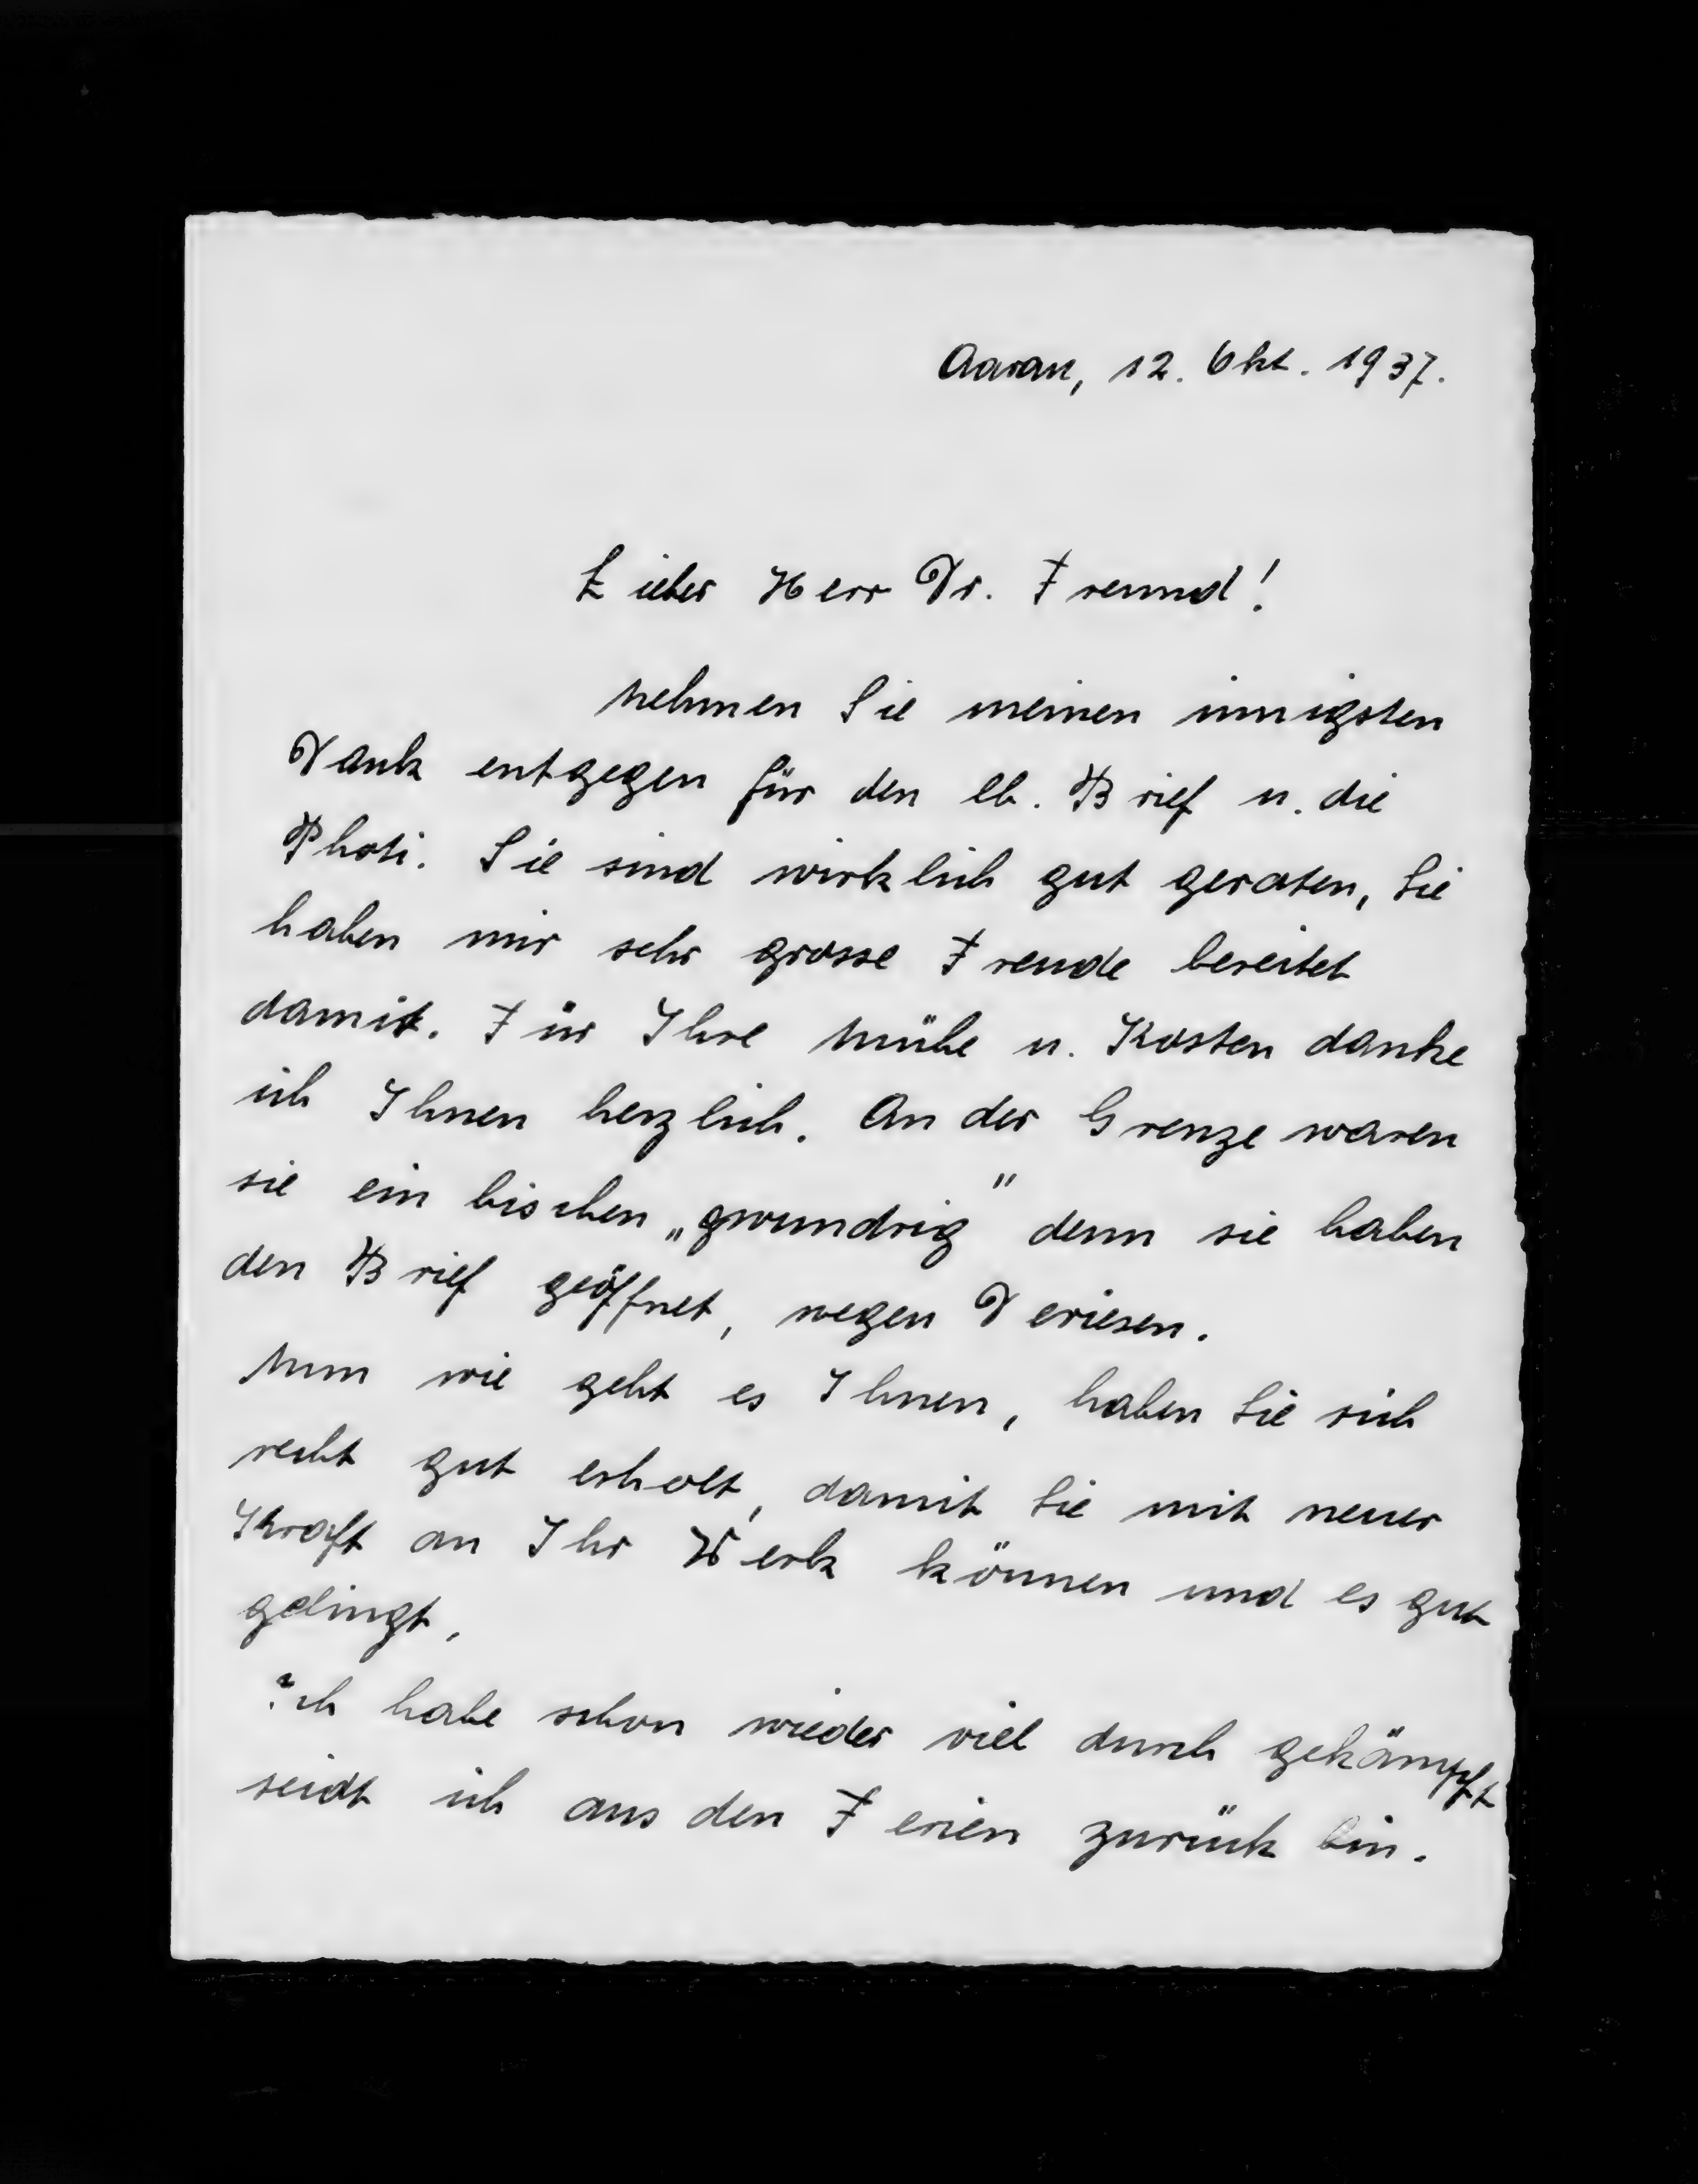 Aarau, 12. Okt. 1937.
Lieber Herr Dr. Freund!
Nehmen Sie meinen innigsten
Dank entgegen für den lb. Brief u. die
Photi. Sie sind wirklich gut geraten, Sie
haben mir sehr grosse Freude bereitet
damit. Für Ihre Mühe u. Kosten danke
ich Ihnen herzlich. An der Grenze waren
sie ein bischen „gwundrig" denn sie haben
den Brief geöffnet, wegen Deviesen.
Nun wie geht es Ihnen, haben Sie sich
recht gut erholt, damit Sie mit neuer
Kraft an Ihr Werk können und es gut
gelingt,
Ich habe schon wieder viel durch gekämpft
seidt ich aus den Ferien zurück bin.